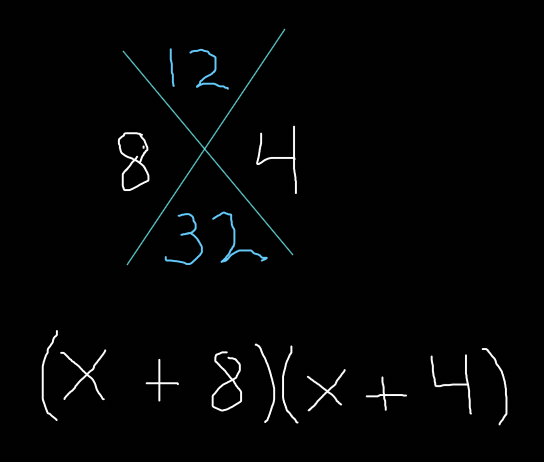 12
8 4
32
(x + 8)(x + 4)